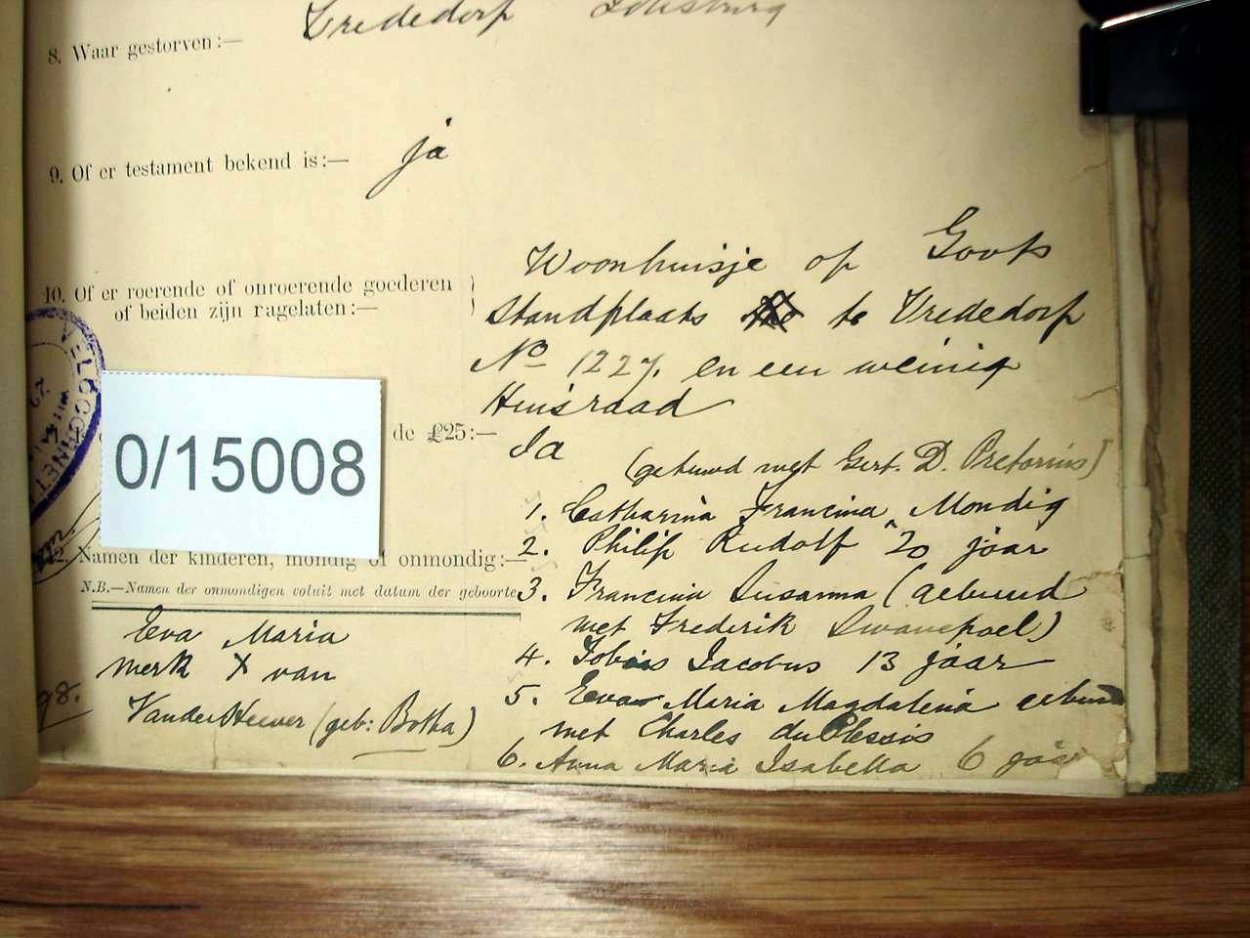 Vrededorp Johsburg
8. Waar gestorven:—
9. Of er testament bekend is:— ja
10. Of er roerende of onroerende goederen
of beiden zijn nagelaten:—
Woonhuisje op Govts
Standplaats te Vrededorp
No 1227. en een weinig
Huisraad
de £25:— Ja
0/15008
(getuwd met Gert. D. Pretorius)
2. Namen der kinderen, mondig of onmondig:—
N.B.—Namen der onmondigen voluit met datum der geboorte
1. Catharina Francina Mondig
2. Philip Rudolf 20 jaar
3. Francina Susanna (getuud
met Frederik Swanepoel)
4. Tobias Jacobus 13 jaar
5. Eva Maria Magdalena
met Charles du Plessis
6. Anna Maria Isabella 6 jaar
Eva Maria
merk X van
Van der Heever (geb: Botha)
98.